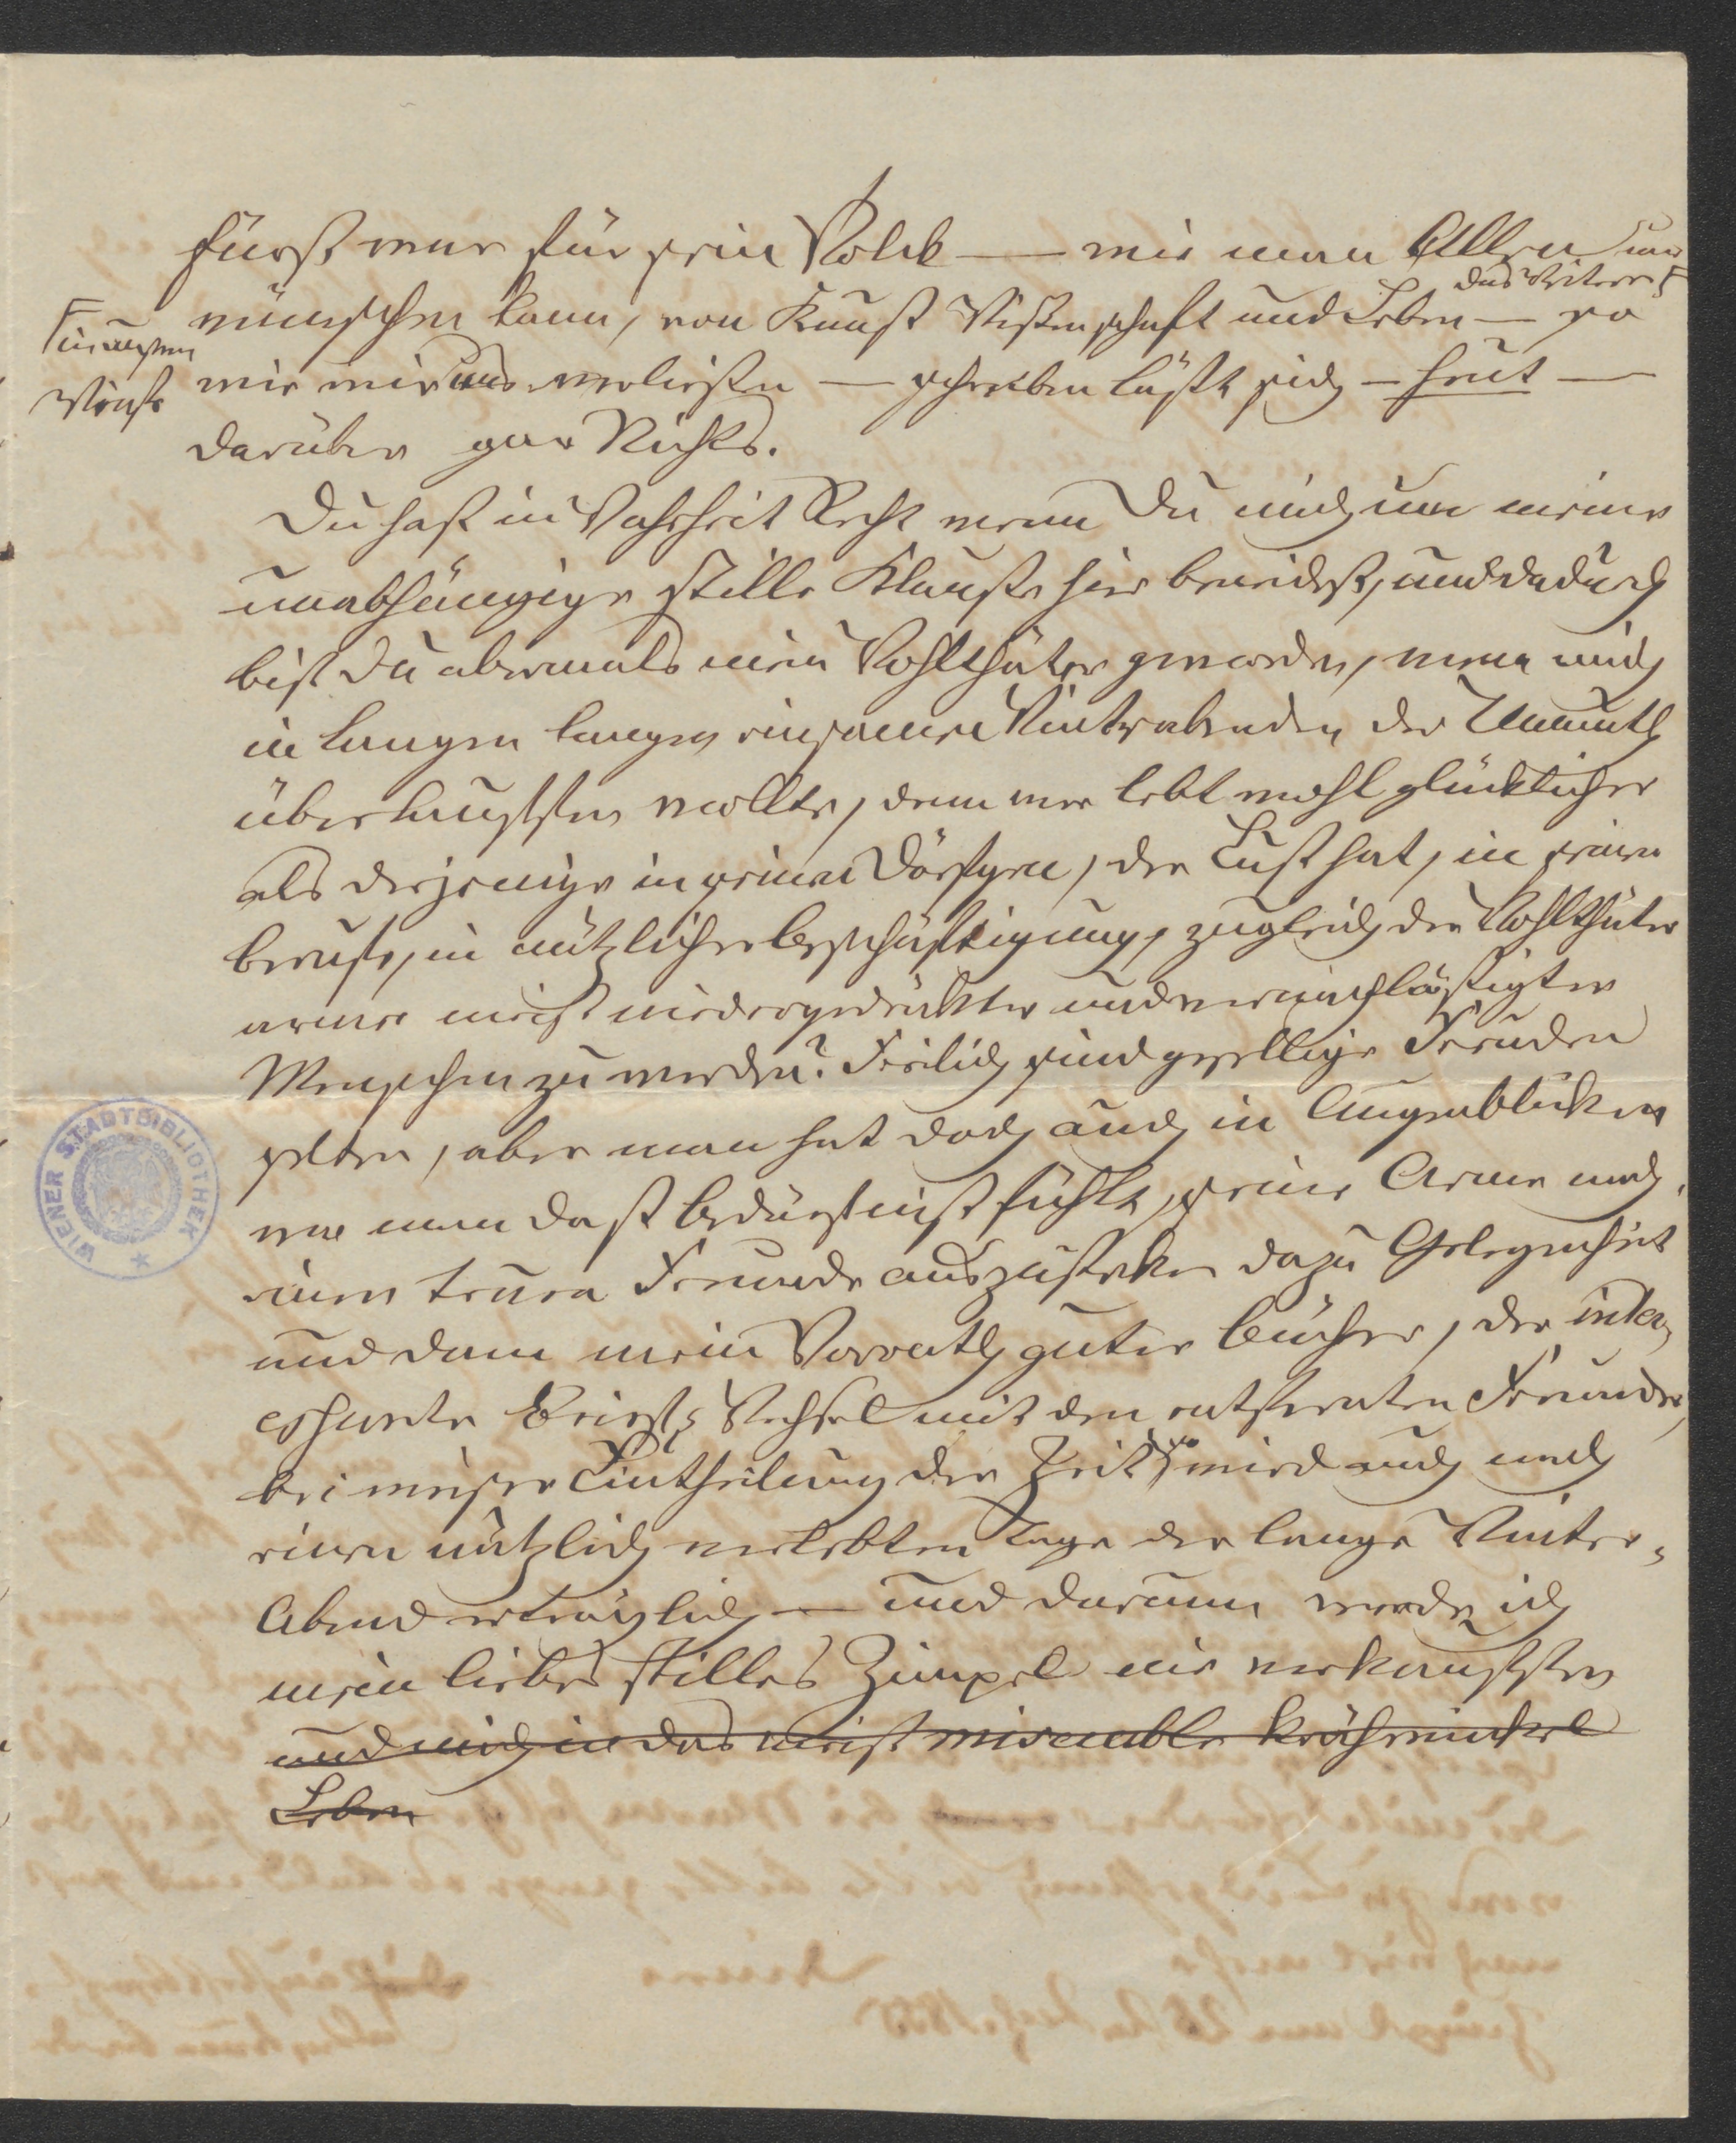 Fürst war für sein Volk — wie man Allen nur
das Weitere
wünschen kann, von Kunst Wissenschaft und Leben — so
in ernster
Weise
wie wir uns verliessen — schreiben läßt sich — heut —
darüber gar Nichts.
Du hast in Wahrheit Recht wenn Du mich um meine
unabhängige stille Klause hier beneidest, und dadurch
bist Du abermals mein Wohlthäter geworden, wenn mich
in langen langen einsamen Winterabenden der Unmuth
überlaufen wollte, denn wer lebt wohl glücklicher
als derjenige in seinem Dörfgen, der Lust hat, in seinem
Berufe, in nützlicher Beschäftigung, zugleich der Wohlthäter
armer meist niedergedrückter und vernachläßigter
Menschen zu werden? Freilich sind gesellige Freuden
selten, aber man hat doch auch in Augenblicken
wo man daß Bedürfniß fühlt, seine Arme nach
einem treuen Freunde auszustrecken dazu Gelegenheit
und dann mein Vorrath guter Bücher, der inter,
essante Brief, Wechsel mit den entfernten Freunden,
bei weiser Eintheilung der Zeit so wird auch nach
einem nützlich verlebten Tage der lange Winter,
Abend erträglich — und darum werde ich
mein liebes stilles Zimpel nie verkaufen
und mich in das meist miserable Krähwinkel
Leben
WIENER STADTBIBLIOTHEK